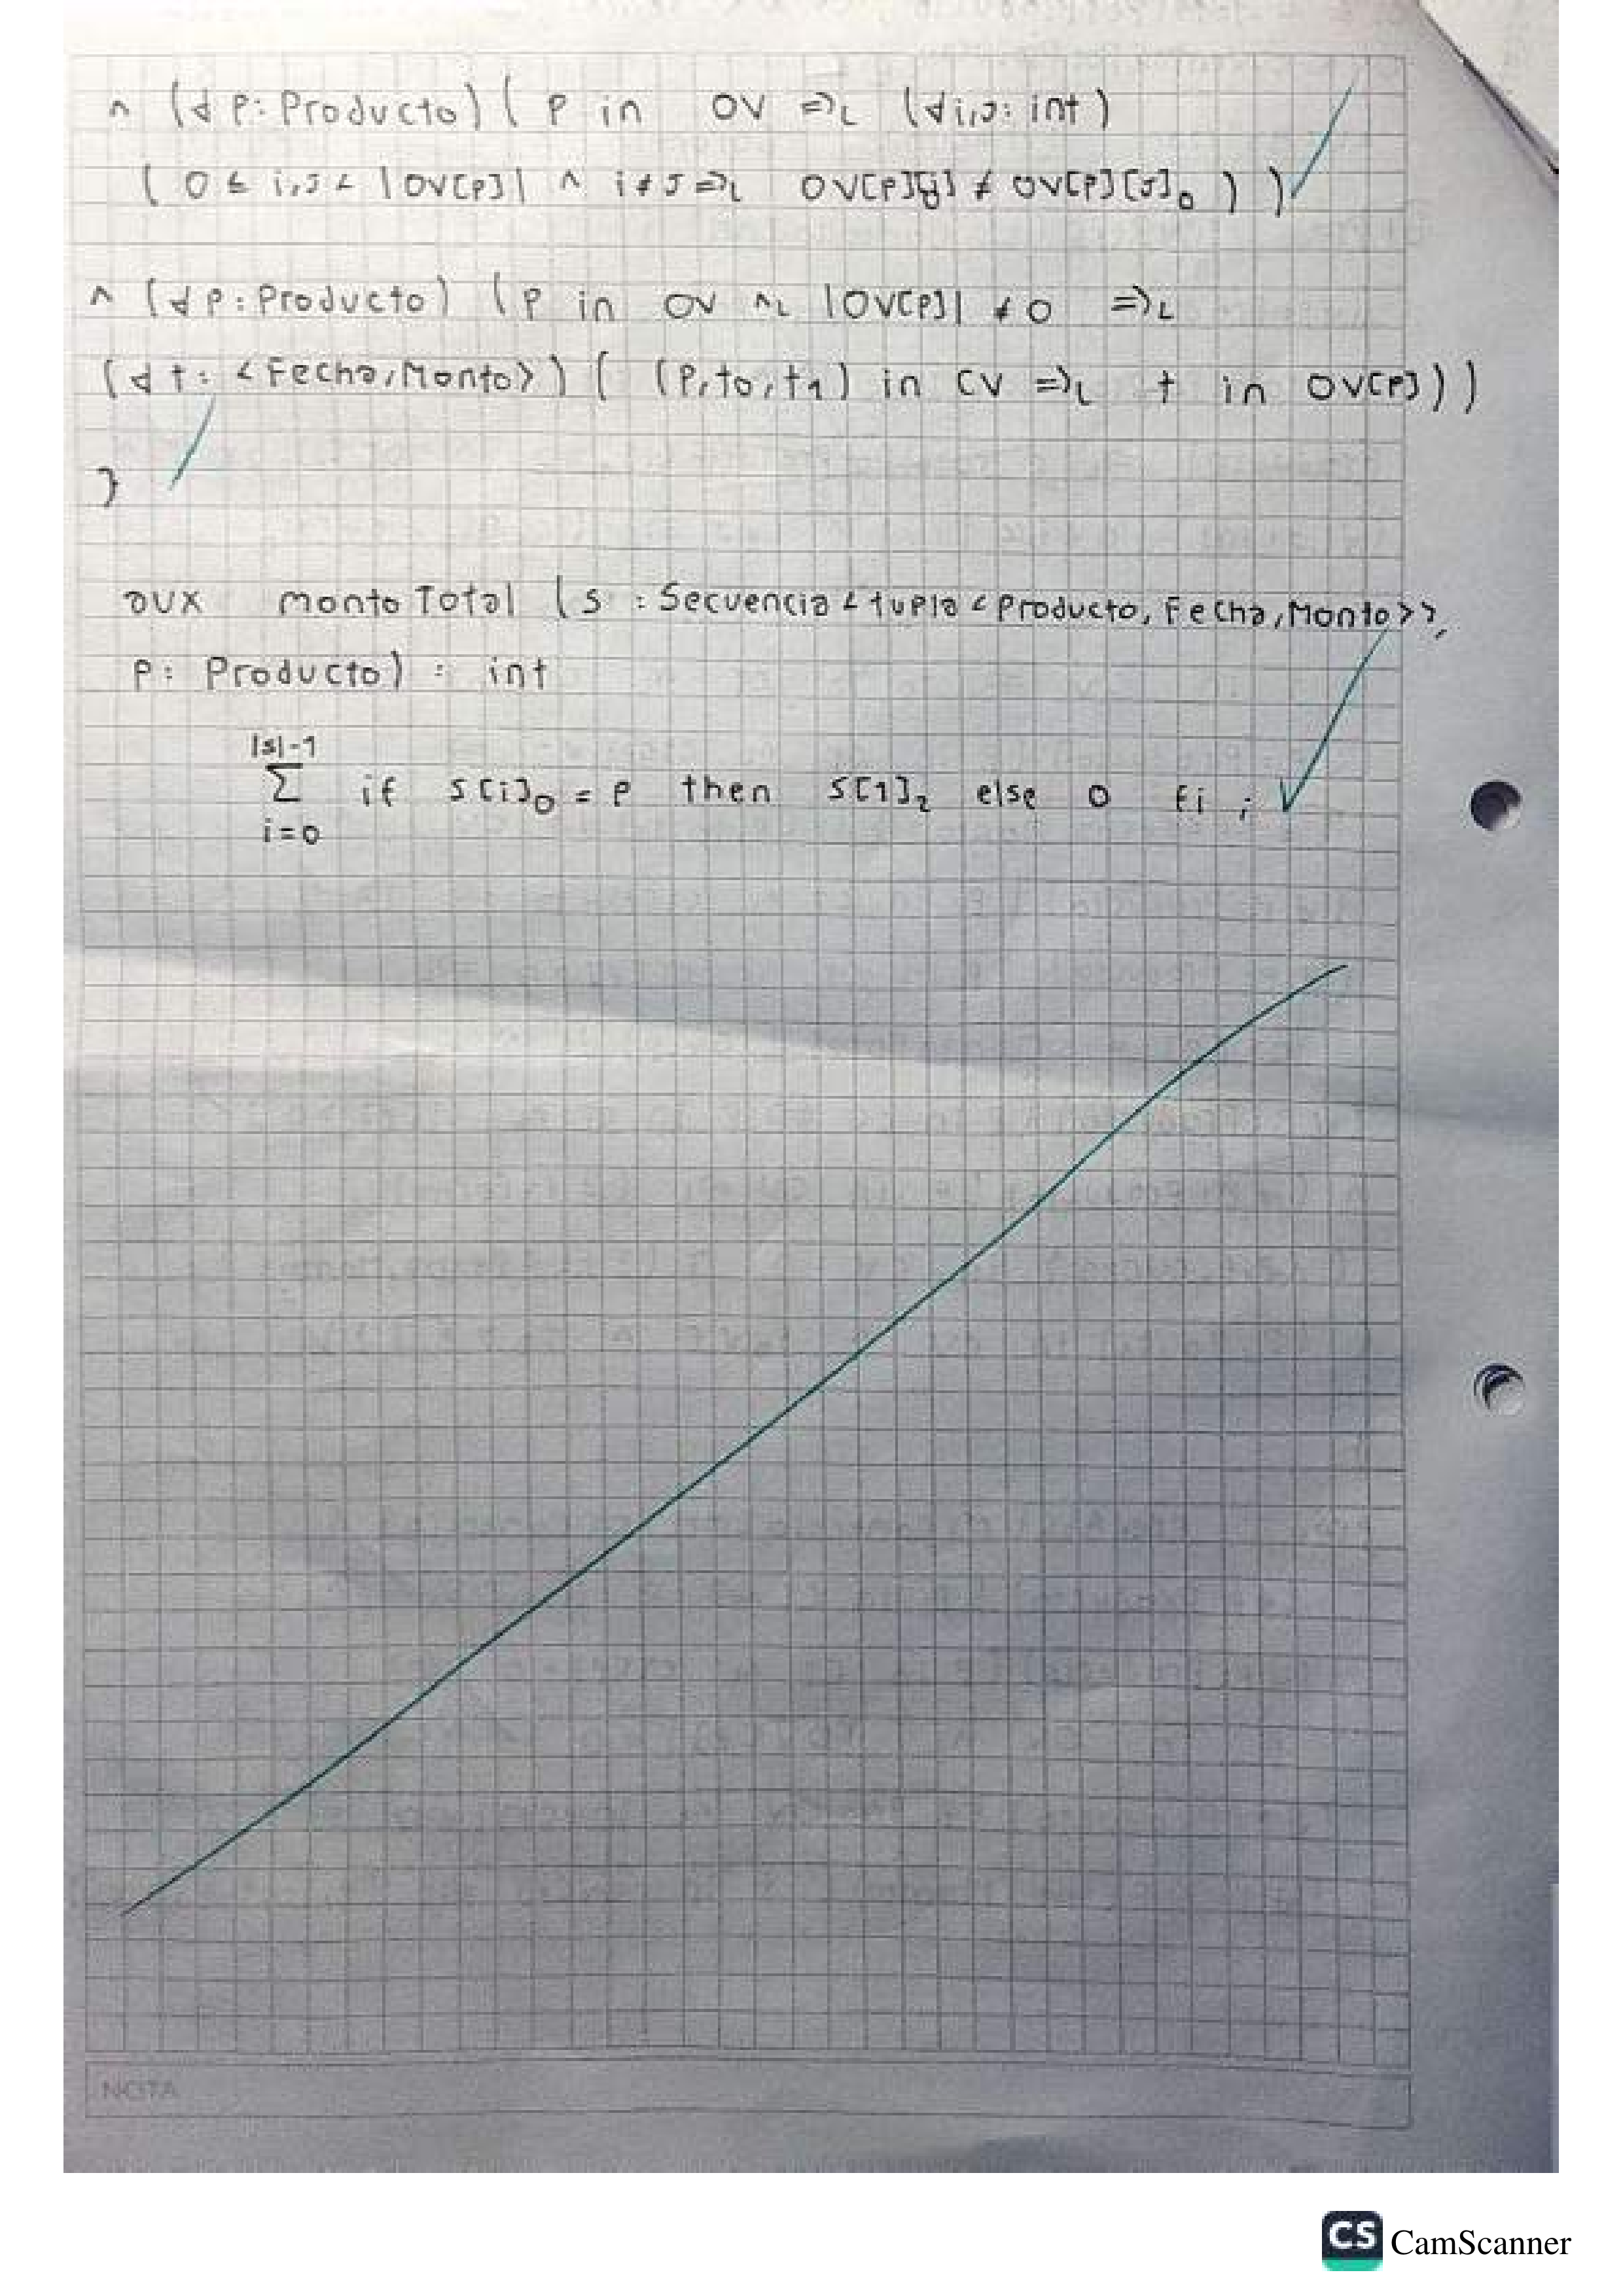 ∧ (∀ P: Producto) ( P in OV ⇒L (∀ i,J: int)
( 0 ≤ i,J < |OV[P]| ∧ i ≠ J ⇒L OV[P][i]₀ ≠ OV[P][J]₀ ) )
∧ (∀ P: Producto) (P in OV ∧L |OV[P]| ≠ 0 ⇒L
(∀ t: <Fecha, Monto>) ( (P, t0, t1) in CV ⇒L t in OV[P]))
}
aux montoTotal (s : Secuencia < tupla < Producto, Fecha, Monto>>,
P: Producto) : int
|s|-1
∑ if s[i]₀ = P then s[1]₂ else 0 fi ;
i=0
NOTA
CS CamScanner